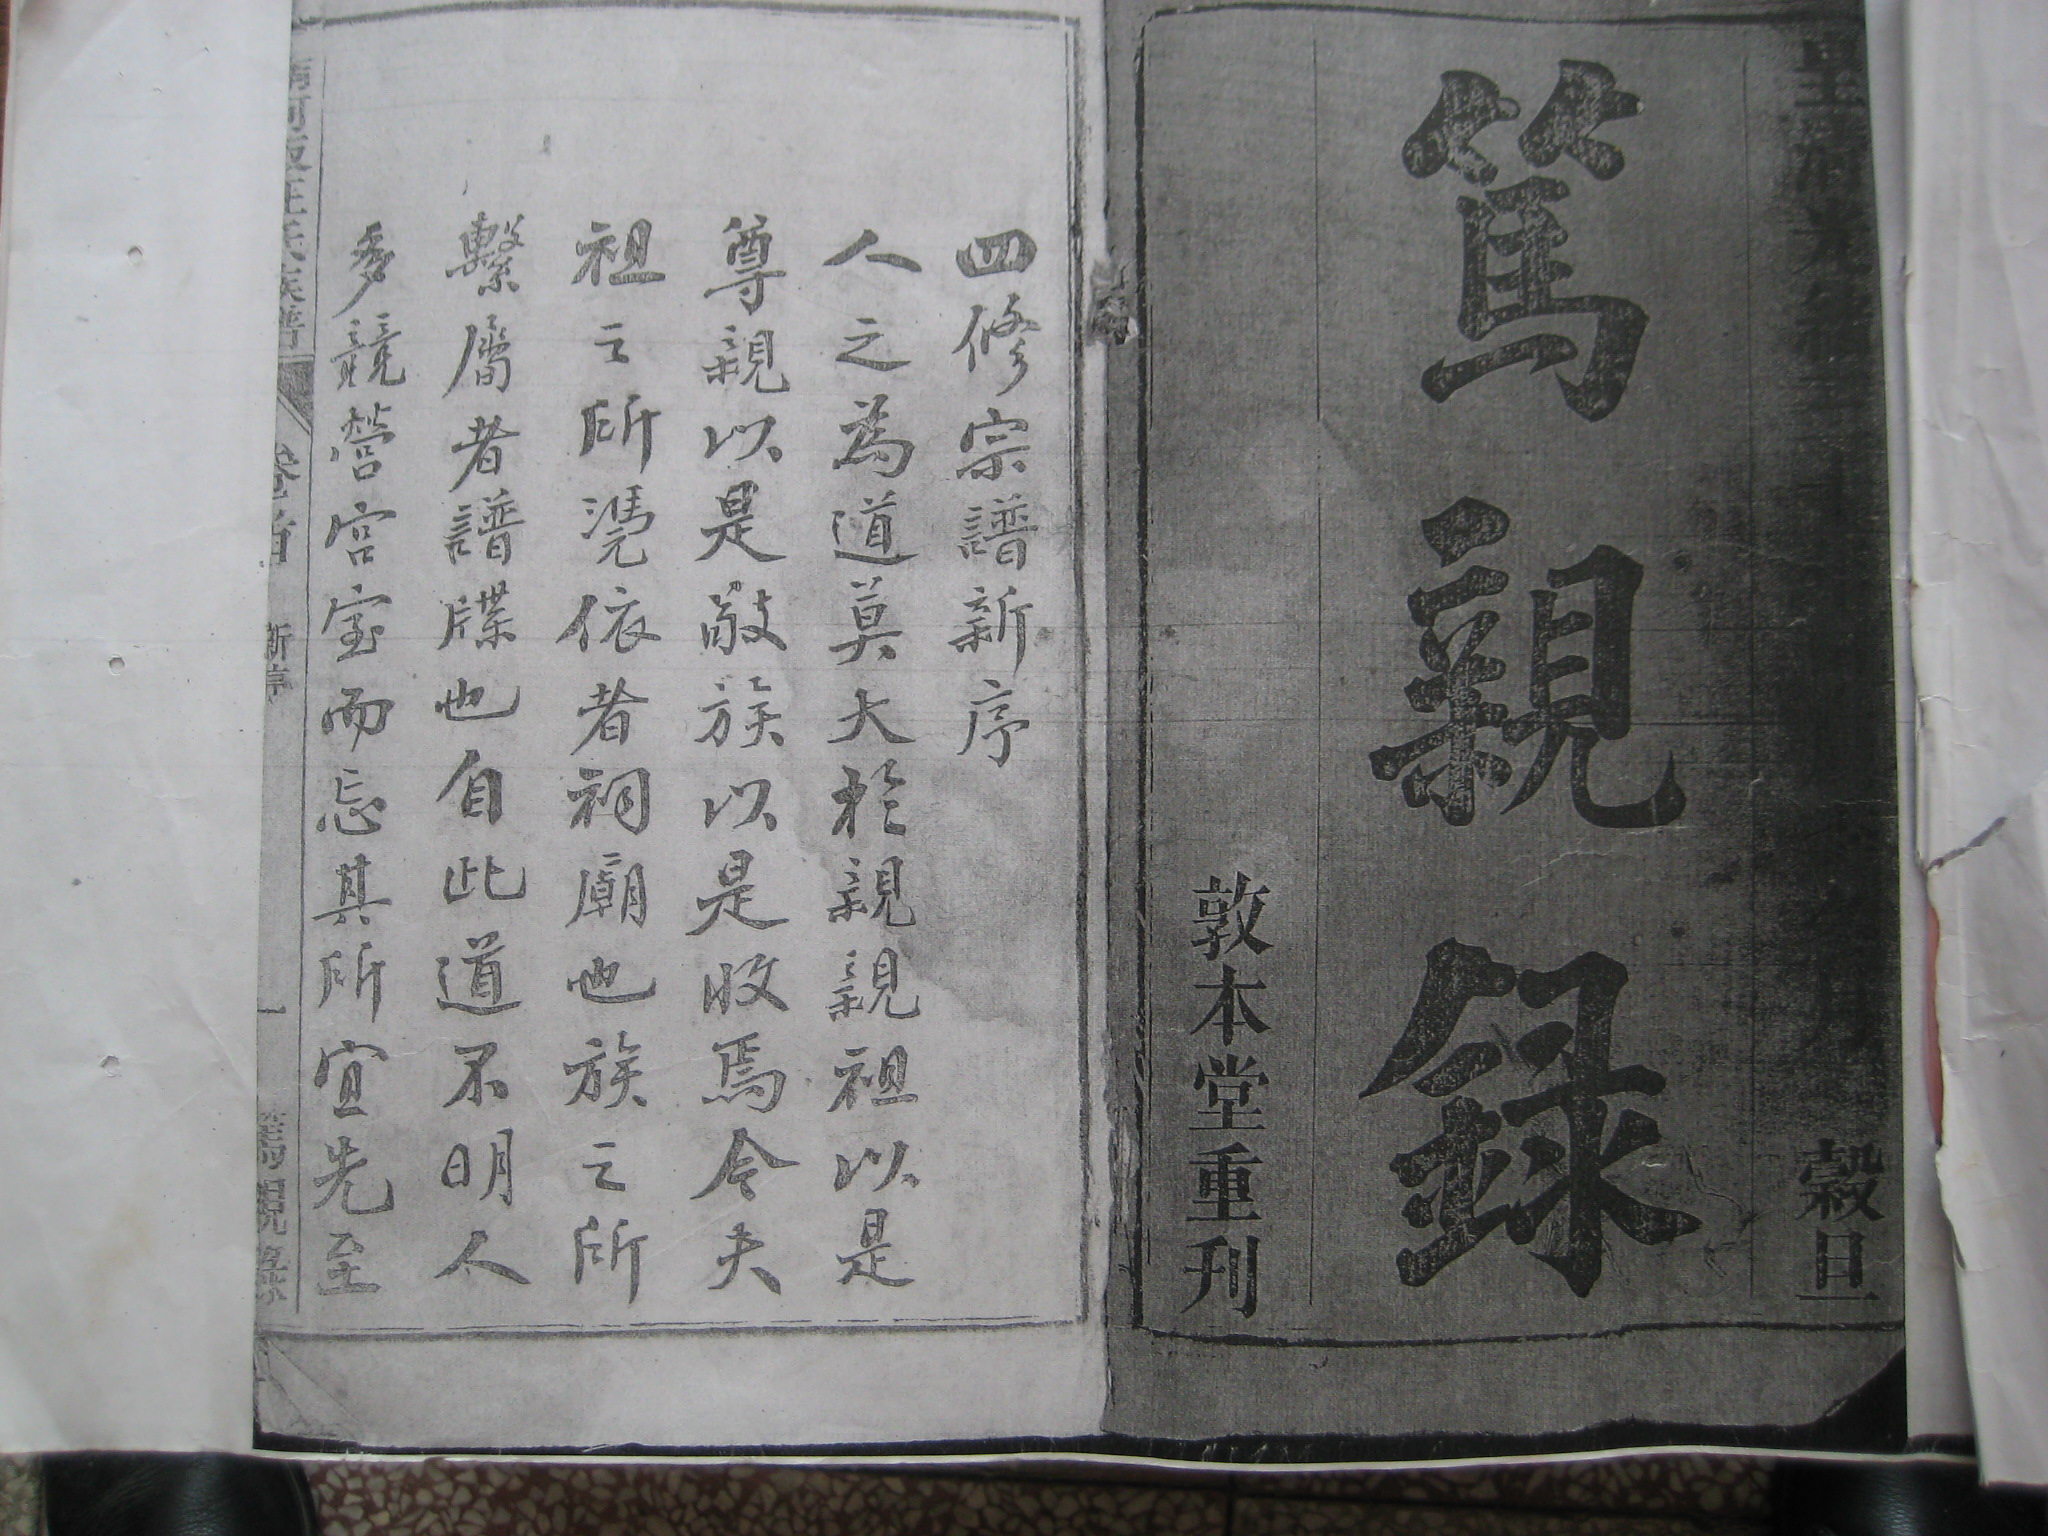 皇清光緒三十
月
穀旦
篤親錄
敦本堂重刊
四修宗譜新序
人之為道莫大於親親祖以是
尊親以是敬族以是收焉今夫
祖之所憑依者祠廟也族之所
繫屬者譜牒也自此道不明人
多競營宮室而忘其所宜先至
汪氏族譜
卷首
新序
一
篤親錄